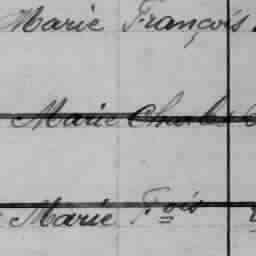 Marie François
Marie Charles
Marie Fois